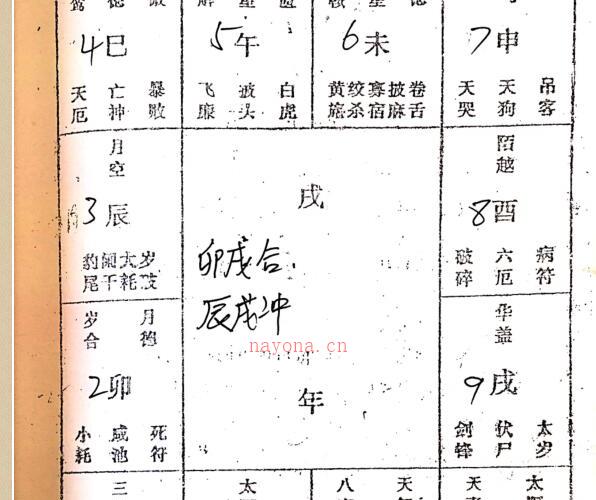 4巳
5午
6未
7申
天厄 亡神 暴败
飞廉 披头 白虎
黄旛 绞杀 寡宿 披麻 卷舌
天哭 天狗 吊客
月空
3辰
豹尾 阑干 大耗 岁破
戌
卯戌合.
辰戌冲
年
陌越
8酉
破碎 六厄 病符
岁合 月德
2卯
小耗 咸池 死符
华盖
9戌
剑锋 伏尸 太岁
三
太
八
天
天
太
nayona.cn